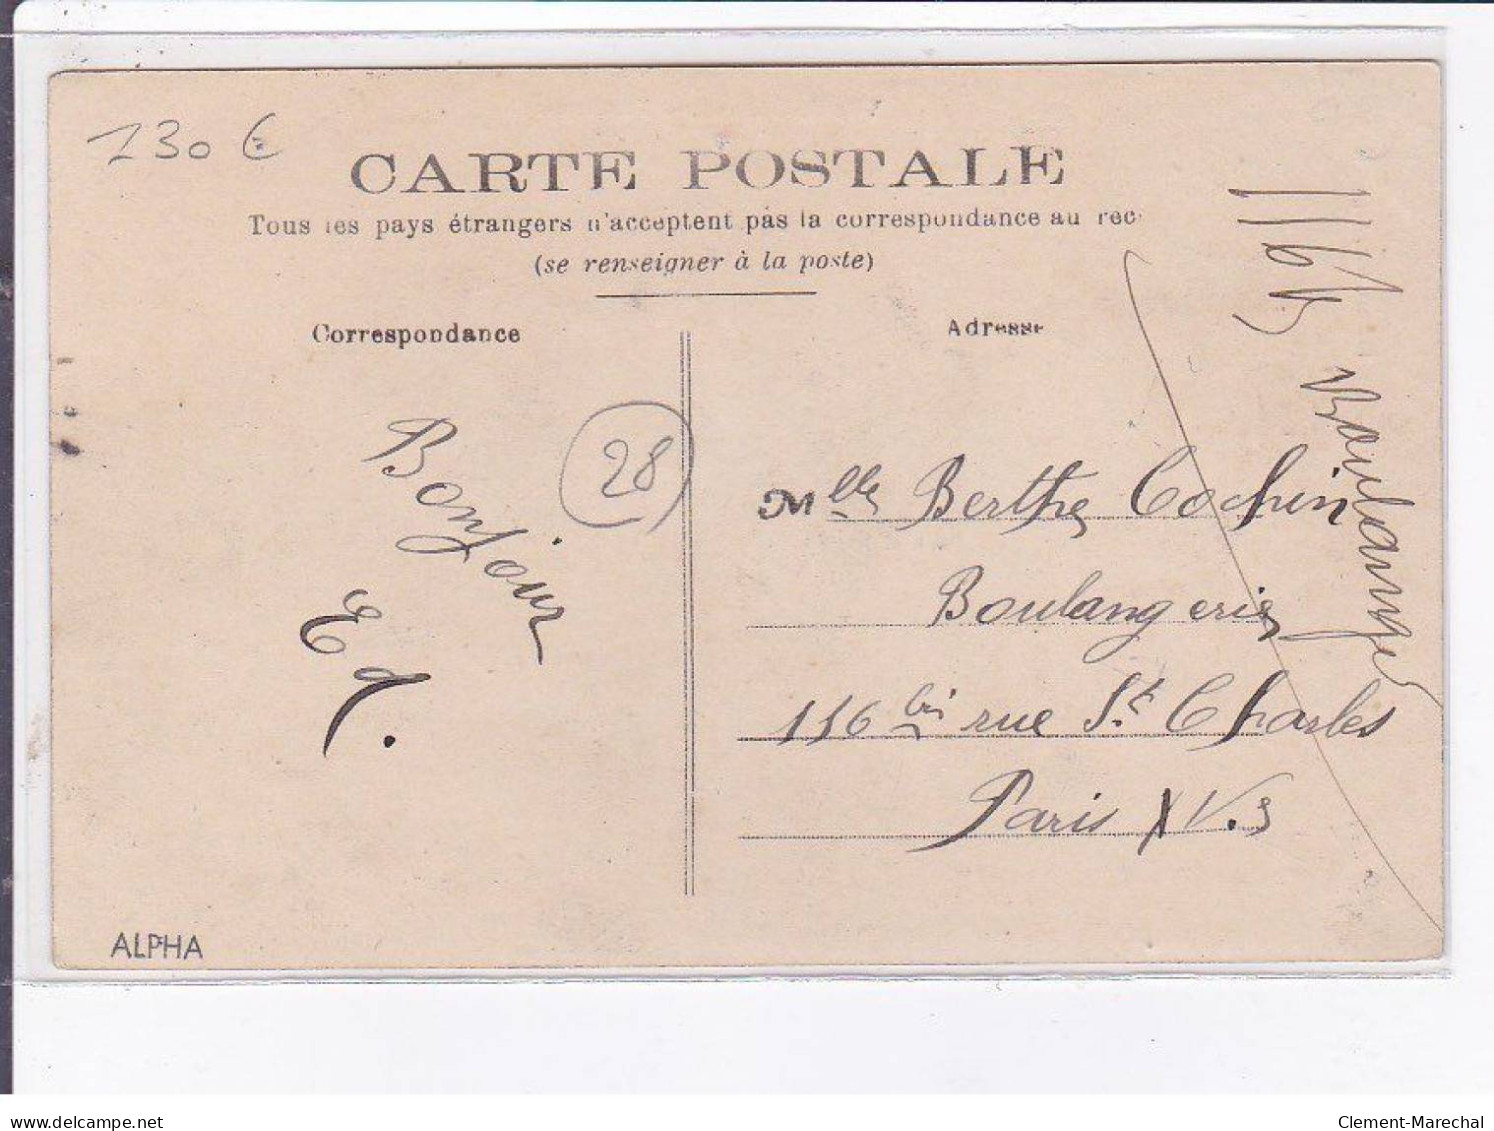 130 €
CARTE POSTALE
Tous les pays étrangers n'acceptent pas la correspondance au rec
(se renseigner à la poste)
Correspondance
Adresse
Bonjour
Ed.
28
Mlle Berthe Cochin
Boulangerie
116 bis rue St Charles
Paris XV.e
Boulanger
ALPHA
www.delcampe.net
Clement-Marechal